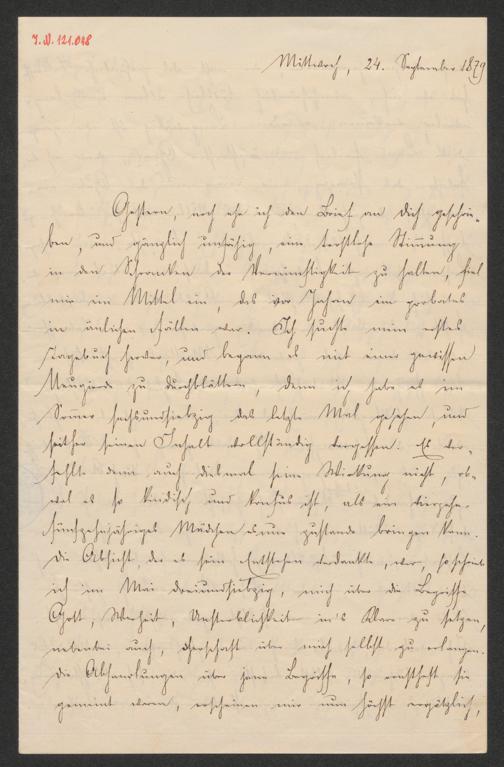 J.N. 121.048
Mittwoch, 24. September 1879
Gestern, noch ehe ich den Brief an Dich geschrie-
ben, und gänzlich unfähig, eine trostlose Stimmung
in den Schranken der Vernünftigkeit zu halten, fiel
mir ein Mittel ein, das vor Jahren ein probates
in änlichen Fällen war. Ich suchte mein erstes
Tagebuch hervor, und begann es mit einer gewissen
Neugierde zu durchblättern, denn ich habe es im
Sommer sechsundsiebzig das letzte Mal gesehen, und
seither seinen Inhalt vollständig vergessen. Es ver-
fehlte denn auch diesmal seine Wirkung nicht, ob-
wol es so kindisch und konfus ist, als ein vierzehn-
fünfzehnjähriges Mädchen es nur zustande bringen kann.
Die Absicht, der es sein Entstehen verdankte, war, so schrieb
ich im Mai dreiundsiebzig, mich über die Begriffe
Gott, Warheit, Unsterblichkeit in's Klare zu setzen,
nebenbei auch, Herrschaft über mich selbst zu erlangen.
Die Abhandlungen über jene Begriffe, so ernsthaft sie
gemeint waren, erscheinen mir nun höchst ergötzlich,